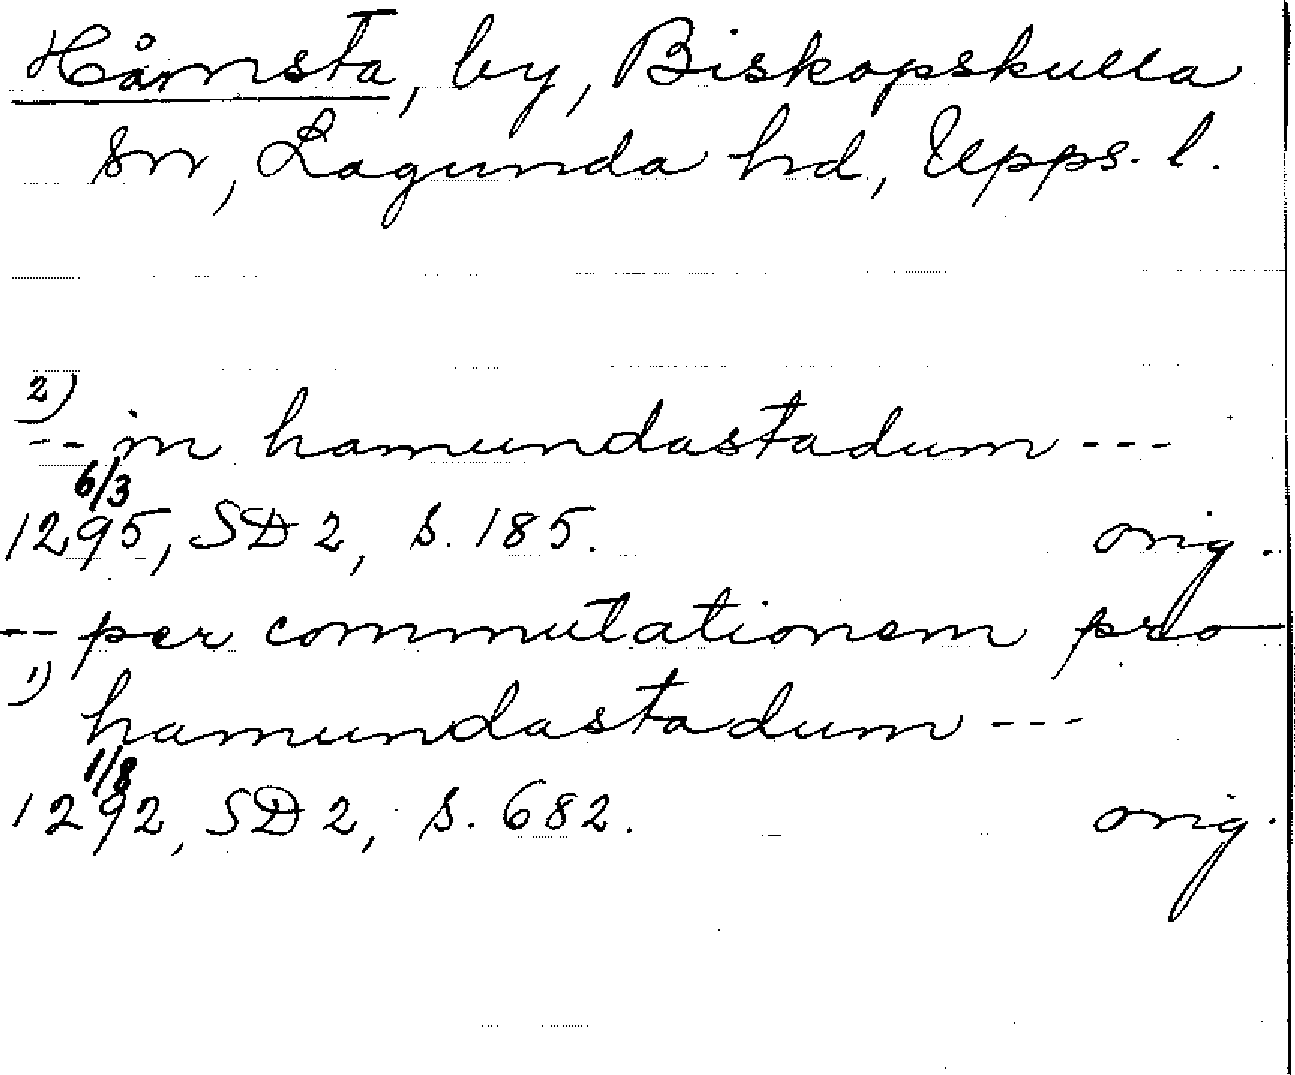 Håmsta, by, Biskopskulla
sn, Lagunda hd, Upps. l.
2)
-- in hamundastadum ---
6/3
1295, SD 2, s. 185. orig.
-- per commutationem pro
1)
hamundastadum ---
1/8
1292, SD 2, s. 682. orig.